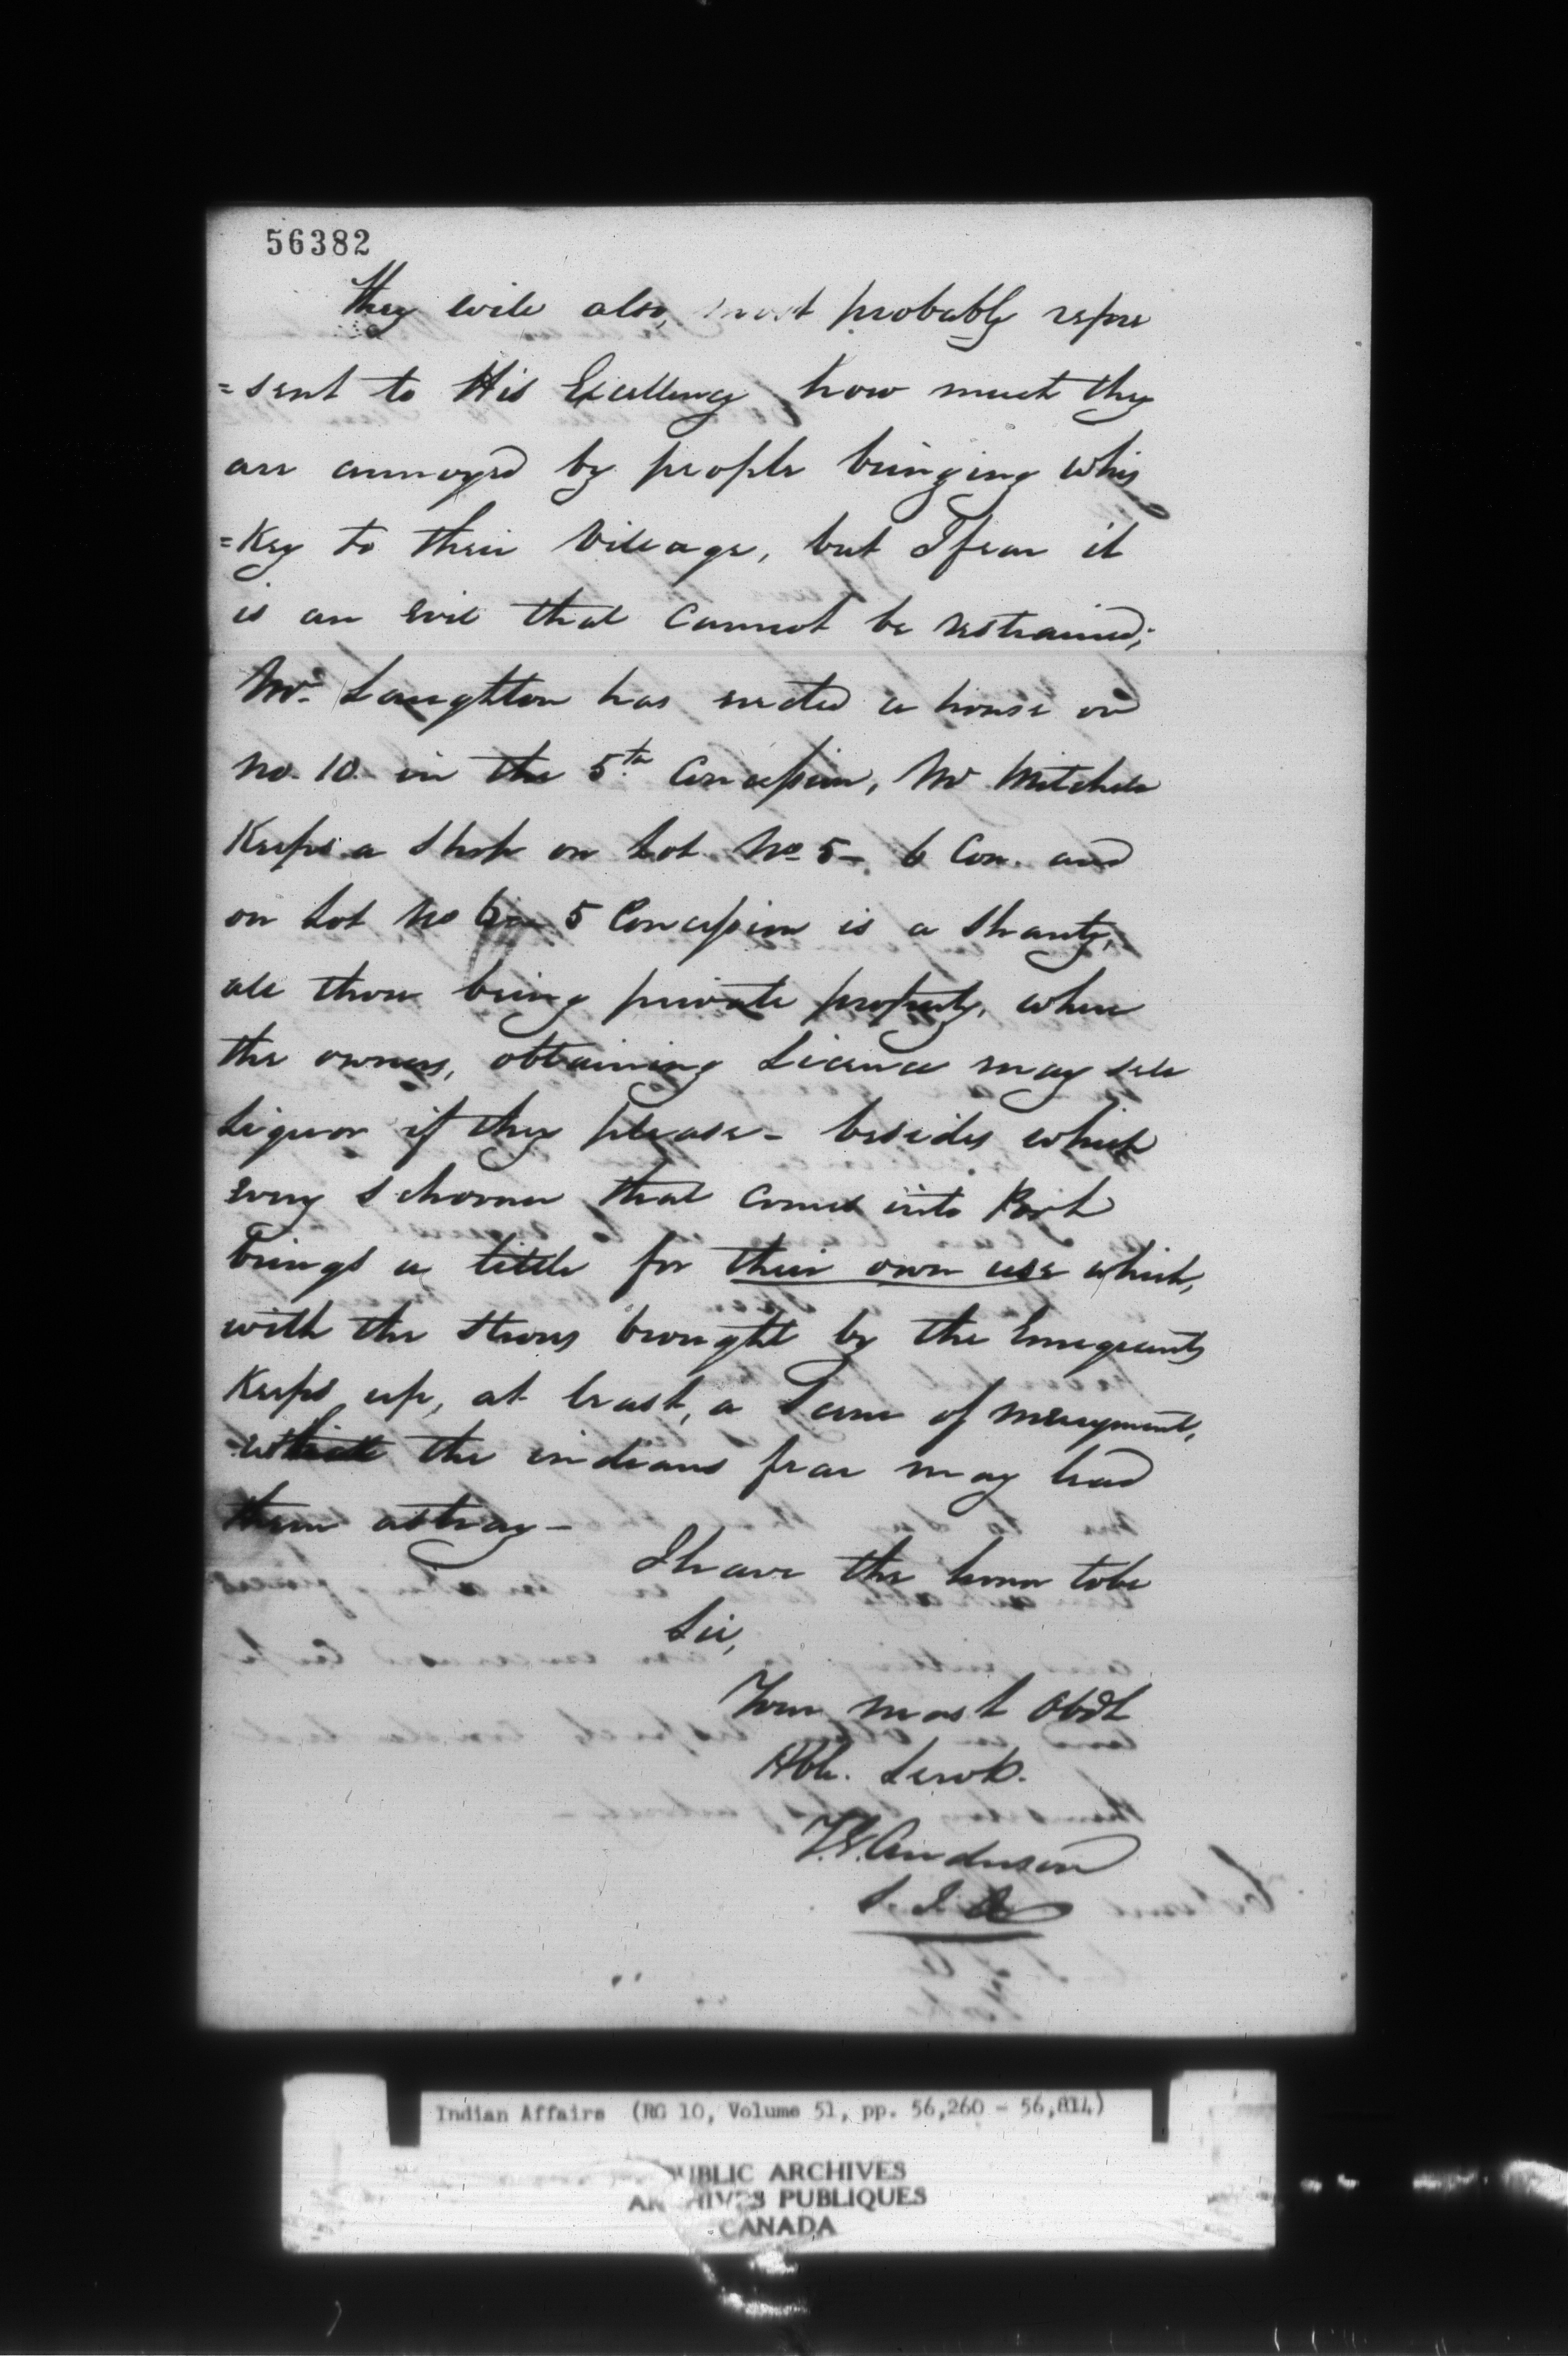 56382
They will also, most probably repre
=sent to His Excellency how much they
are annoyed by people bringing whis
=key to their Village, but I fear it
is an evil that cannot be restrained;
Mr. Laughton has erected a house on
No. 10 in the 5th Concession, Mr Mitchell
Keeps a Shop on Lot No 5 - 6 Con. and
on Lot No 5 Concession is a Shanty,
all those being private property, where
the owners, obtaining Licence may sell
Liquor if they please - besides which
every Schooner that comes into Port
brings a little for their own use which,
with the stores brought by the Emegrants
Keeps up, at least, a Scene of merryment,
which the indians fear may lead
them astray -
I have the honor to be
Sir,
Your most Obdt
Hble. Servt.
T.G. Anderson
S. I. A
Indian Affairs (RG 10, Volume 51, pp. 56,260 - 56,814)
PUBLIC ARCHIVES
ARCHIVES PUBLIQUES
CANADA